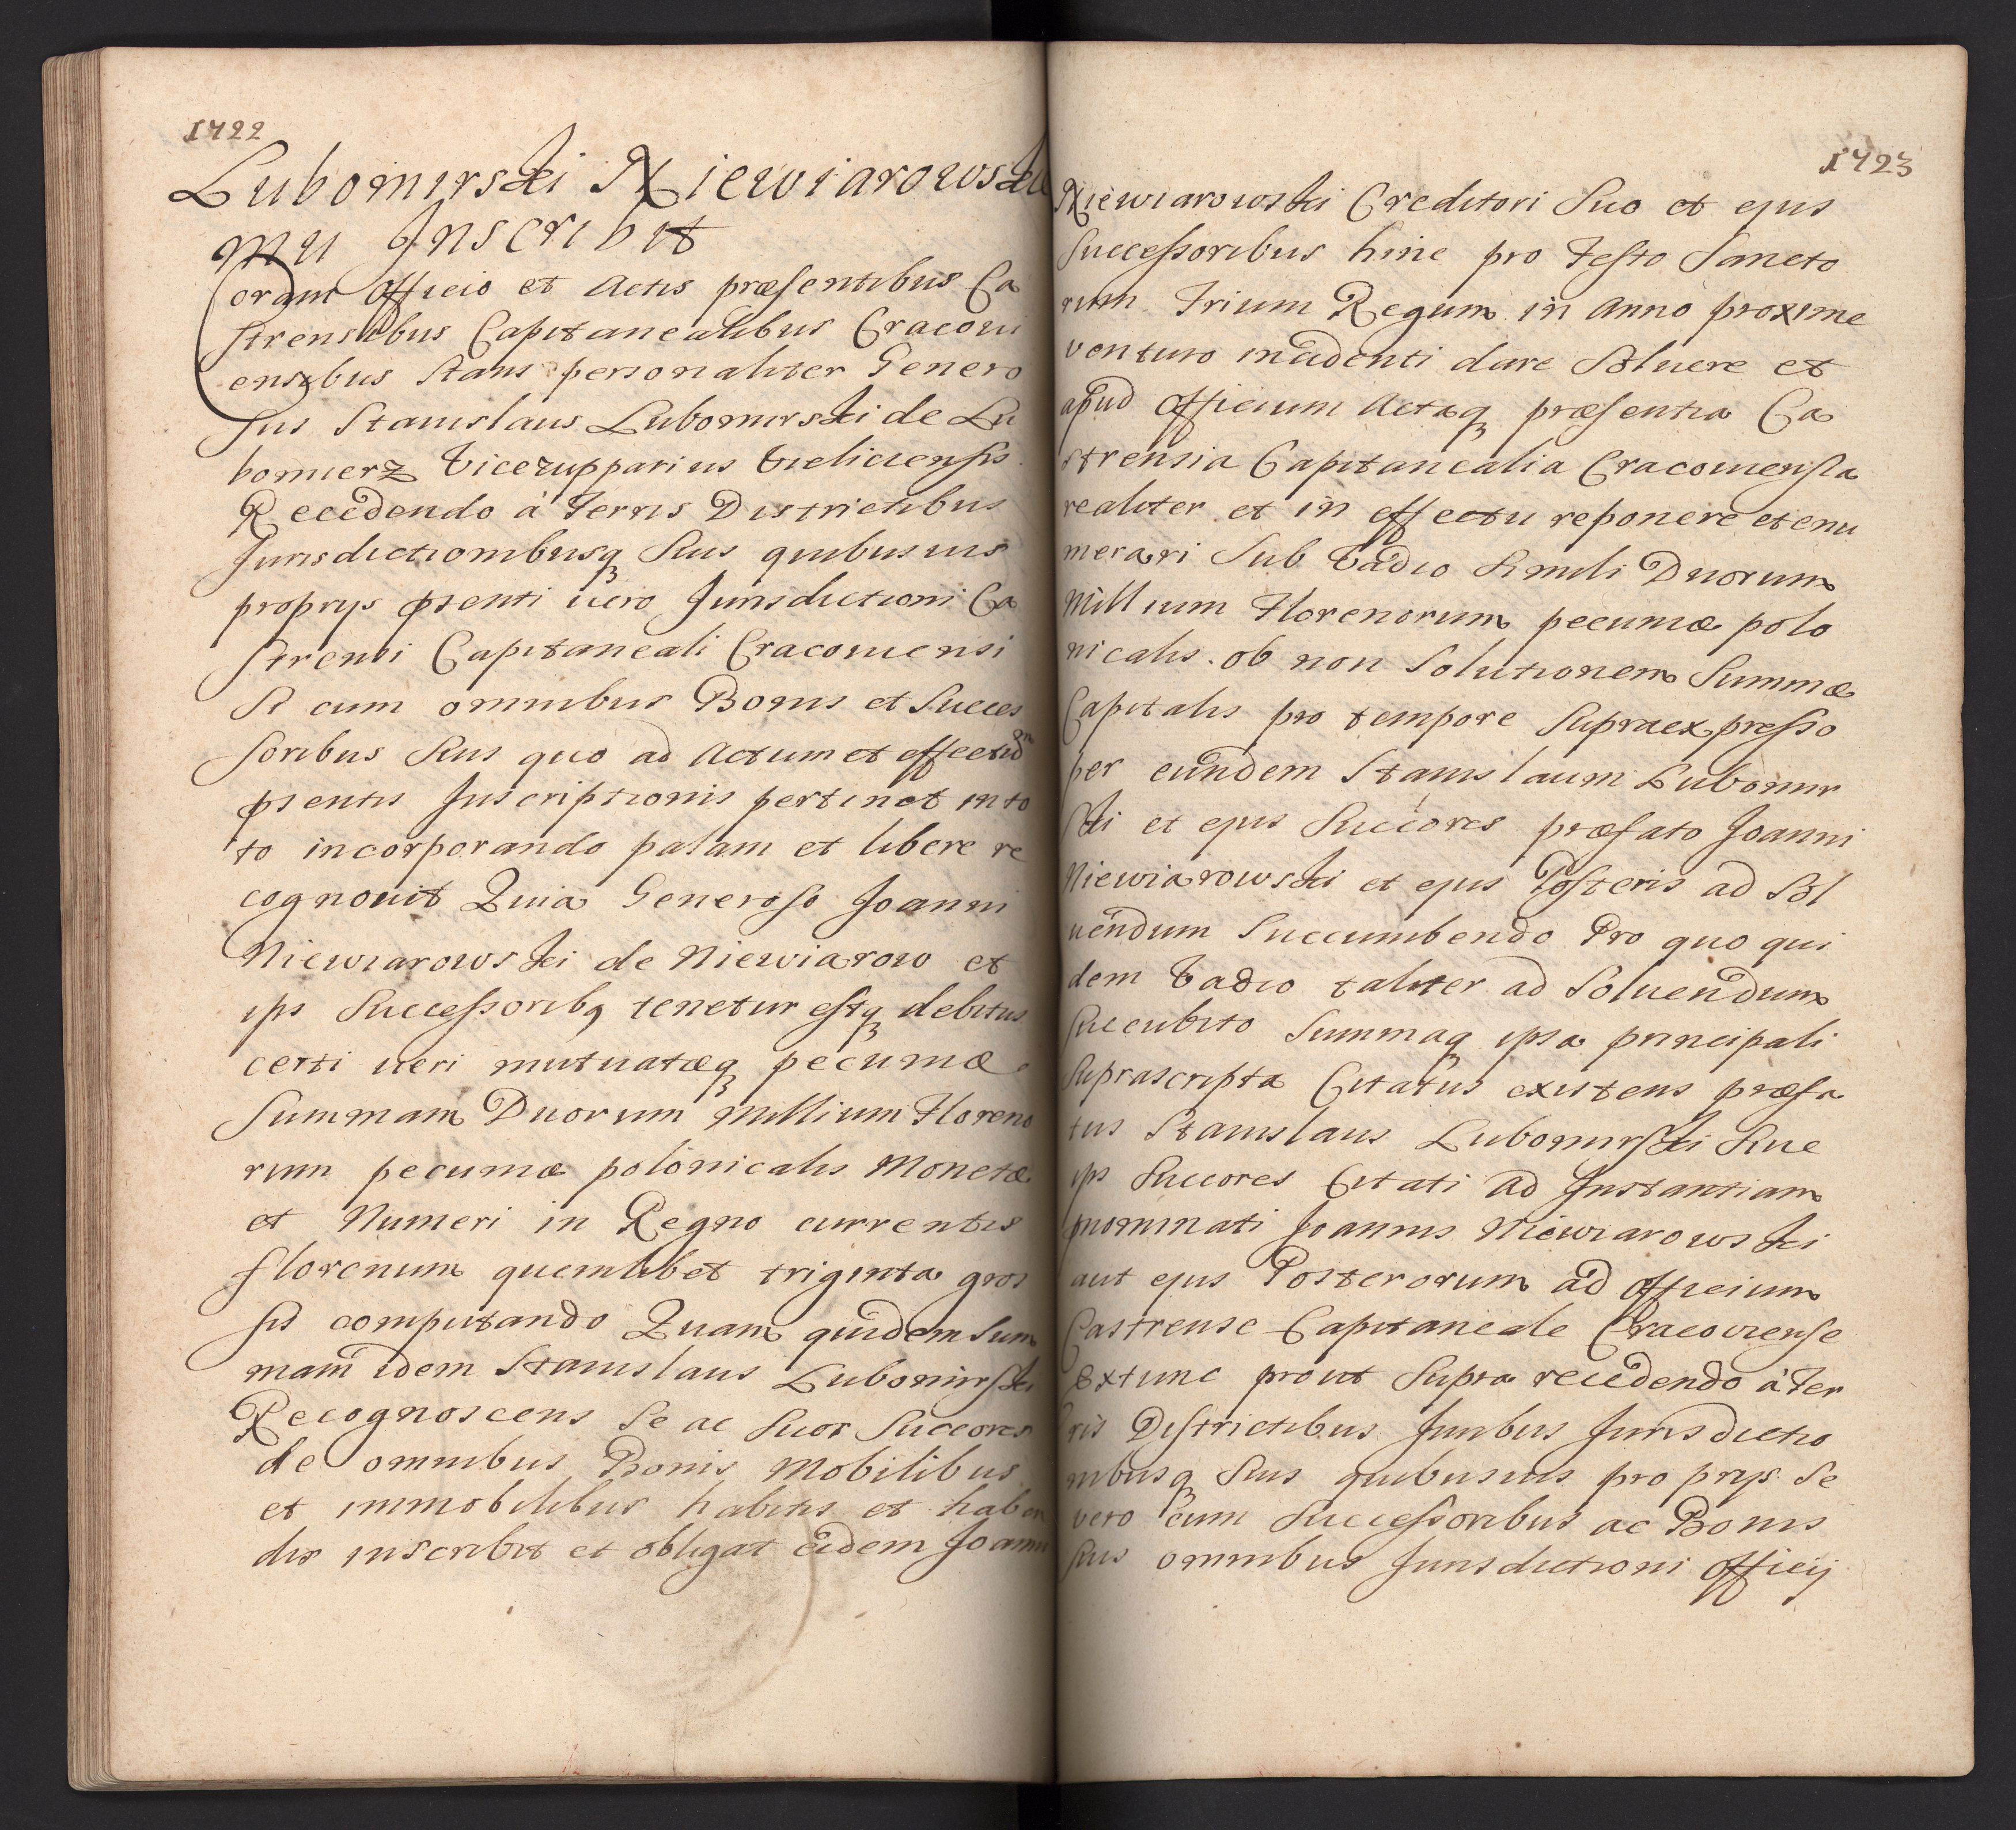 1722
Lubomirski Niewiarowskie
mu Inscribit
Coram Officio et Actis præsentibus Ca
strensibus Capitanealibus Cracovi
ensibus Stans personaliter Genero
sus Stanislaus Lubomirski de Lu
bomierz Vicezupparius Vieliciensis
Recedendo à Terris Districtibus
Jurisdictionibusq Suis quibusuis
proprys pñti uero Jurisdictioni Ca
strensi Capitaneali Cracouiensi
Se cum omnibus Bonis et Succes
soribus Suis quo ad Actum et effectũ
pñtis Inscriptionis pertinet in to
to incorporando palam et libere re
cognouit Quia Generoso Joanni
Niewiarowski de Niewiarow et
ips Successorib9 tenetur estq debitus
certi ueri mutuatæq pecuniæ
Summam Duorum Millium Floreno
rum pecuniæ polonicalis Monetæ
et Numeri in Regno currentis
florenum quemlibet triginta gros
sis computando Quam quidem Sum
mam idem Stanislaus Lubomirski
Recognoscens Se ac Suos Succores
de omnibus Bonis Mobilibus
et immobilibus habitis et haben
dis inscribit et obligat eidem Joanni
1723
Niewiarowski Creditori Suo et ejus
Successoribus hinc pro Festo Sancto
rum Trium Regum in Anno proxime
venturo incidenti dare Soluere et
apud Officium Actaq præsentia Ca
strensia Capitanealia Cracouiensia
realiter et in effectu reponere et enu
merari Sub Vadio Simili Duorum
Millium Florenorum pecuniæ polo
nicalis ob non Solutionem Summæ
Capitalis pro tempore Supraexpresso
per eundem Stanislaum Lubomir
ski et ejus Succores præfato Joanni
Niewiarowski et ejus Posteris ad Sol
uendum Succumbendo Pro quo qui
dem Vadio taliter ad Soluendum
Succubito Summaq ipsa principali
Suprascripta Citatus existens præfa
tus Stanislaus Lubomirski Siue
ips Succores Citati ad Instantiam
pnominati Joannis Niewiarowski
aut ejus Posterorum ad Officium
Castrense Capitaneale Cracoviense
Extunc prout Supra recedendo à Ter
ris Districtibus Juribus Jurisdictio
nibusq Suis quibusuis proprys Se
vero cum Successoribus ac Bonis
Suis omnibus Jurisdictioni Officij